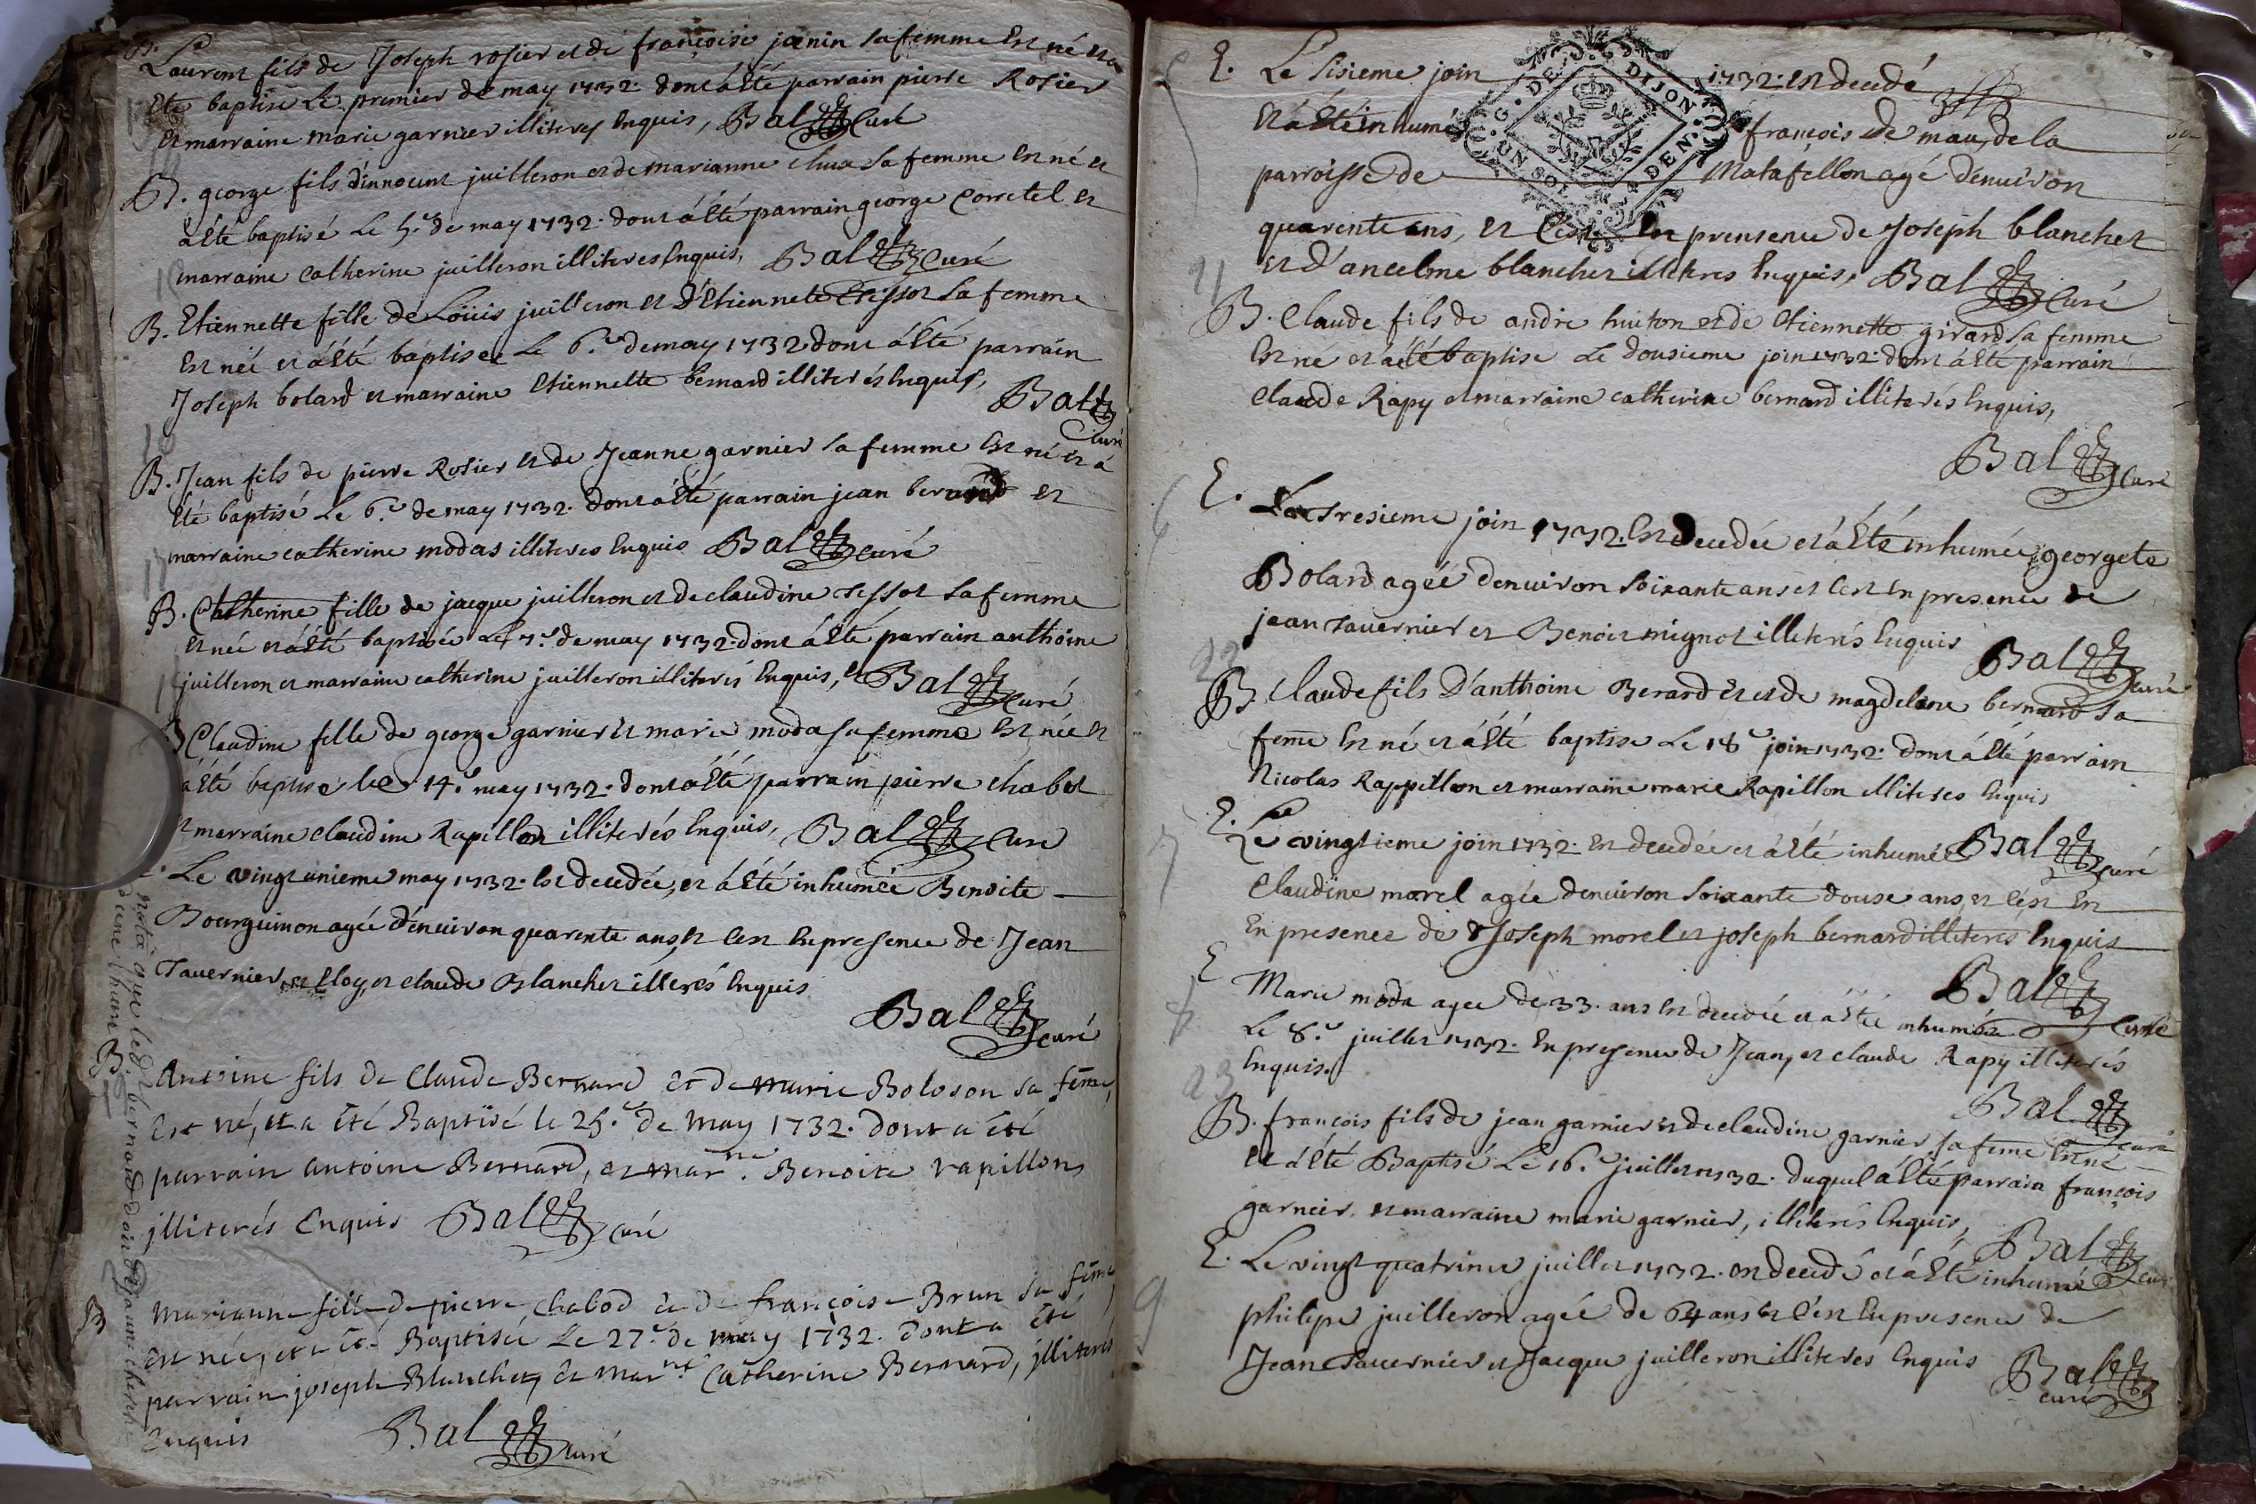 B. Laurent fils de Joseph rosier et de françoise janin sa femme Est né et a
Eté baptisé Le premier de may 1732. dont à Eté parrain pierre Rosier
et marraine marie garnier illiteres Enquis, Bal Curé
B. george fils d'innocent juilleron et de marianne chux sa femme Est né et
à Eté baptisé Le 5.e de may 1732. dont à Eté parrain george Corretel et
marraine Catherine juilleron illiteres Enquis, Bal Curé
B. Etiennette fille de Loüis juilleron et d'Etiennete Sa femme
Est née et à Eté baptisee Le 6.e de may 1732 dont à Eté parrain
Joseph bolard et marraine Etiennette bernard illiterés Enquis, Bal
Curé
B. Jean fils de pierre Rosier et de Jeanne garnier sa femme Est né et à
Eté baptisé Le 6.e de may 1732. dont à Eté parrain jean bernard et
marraine catherine modas illiteres Enquis Bal Curé
B. Catherine fille de jacque juilleron et de claudine tissot sa femme
Est née et à Eté baptisée Le 7.e de may 1732. dont à Eté parrain anthoine
juilleron et marraine catherine juilleron illiterés Enquis, Bal Curé
B Claudine fille de george garnier et marie moda sa femme Est née et
à Eté baptisé le 14.e may 1732. dont à Eté parrain pierre chabot
et marraine claudine Rapillon illiterés Enquis, Bal Curé
Le vingt unieme may 1732. Est decedée, et à Eté inhumée Benoite
Bourguinon agée d'enuiron quarente ans, et c'est En presence de Jean
Tauernier, et Eloy, et claude Blanchet illerés Enquis
Bal Curé
B. Antoine fils de Claude Bernard et de marie Boloson sa féme,
Est né, et a été Baptisé le 25.e de may 1732. dont a été
parrain antoine Bernard, et marne. Benoite rapillons
illiterés Enquis Bal Curé
B Marianne fille de pierre Chabod et de françoise Brun sa féme
est née, et a été Baptisée Le 27.e de may 1732. dont a été
parrain joseph Blanchet, et marne Catherine Bernard, illiterés
Enquis Bal Curé
nota que led. bernard doit
E. Le sisieme join 1732. est decedé
Et à Eté inhumé françois de mau, de la
parroisse de Matafellon agé denuiron
G. DE DIJON
UN SOL
quarente ans, et c'est En prensence de Joseph blanchet
et d'ancelme blanchet illiteres Enquis, Bal Curé
21
B. Claude fils de andre huiton et de Etiennette girard sa femme
Est ne et à été baptise Le dousieme join 1732. dont à Eté parrain
Claude Rapy et marraine catherine bernard illiterés Enquis,
Bal Curé
6
E. Le tresieme join 1732. Est decedée et à Eté inhumée georgete
Bolard agée denuiron soixante ans et c'est En presence de
jean tauernier et Benoit mignot illiterés Enquis
Bal Curé
22
B. Claude fils D'anthoine Berard et de magdelene bernard sa
feme Est né et à Eté baptise Le 18.e join 1732. dont à Eté parrain
Nicolas Rappillon et marraine marie Rapillon illiteres Enquis
Bal Curé
7
E. Le vingtieme join 1732. Est decedée et à Eté inhumée
Claudine morel agée denuiron soixante douse ans, et c'est En
En presence de Joseph morel et joseph bernard illiteres Enquis
Bal Curé
8
E Marie moda agee de 33. ans Est decedée et à Eté inhumée
Le 8.e juillet 1732. En presence de Jean, et claude Rapy illiterés
Enquis.
Bal Curé
23
B. françois fils de jean garnier et de claudine garnier sa feme Est né
Et à Eté Baptisé Le 16.e juillet 1732. duquel à Eté parrain françois
garnier, et marraine marie garnier, illiterés Enquis,
Bal Curé
9
E. Le vingt quatrime juillet 1732. est decedé et à Eté inhumé
philipe juilleron agée de 64 ans et c'est En presence de
Jean Tauernier et Jacque juilleron illiteres Enquis
Bal Curé